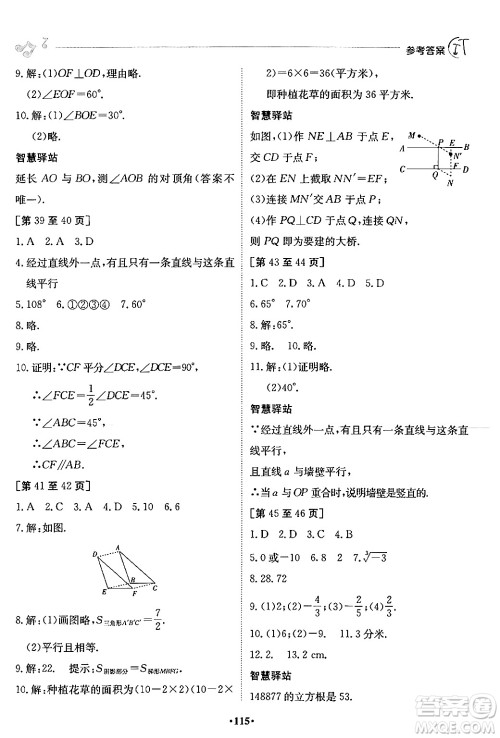 参考答案
9. 解：(1)OF⊥OD，理由略.
(2)∠EOF=60°.
10. 解：(1)∠BOE=60°.
(2)略.
智慧驿站
延长 AO 与 BO，测∠AOB 的对顶角(答案不
唯一).
[第 39 至 40 页]
1. A 2. D 3. A
4. 经过直线外一点，有且只有一条直线与这条直
线平行
5. 108° 6. ①②③④
8. 略.
9. 略.
10. 证明：∵CF 平分∠DCE，∠DCE=90°，
∴∠FCE=1/2∠DCE=45°.
∵∠ABC=45°，
∴∠ABC=∠FCE.
∴CF∥AB.
[第 41 至 42 页]
1. A 2. C 3. A 4. D 5. D
7. 解：如图.
A
D
B
C E F
8. 解：(1)画图略，S三角形A'B'C'=7/2
(2)平行且相等.
9. 解：22. 提示：S阴影部分=S梯形MHFG.
10. 解：种植花草的面积为(10－2×2)(8－
2)=6×6=36(平方米).
即种植花草的面积为 36 平方米.
智慧驿站
如图，(1)作 NE⊥AB 于点 E，
交 CD 于点 F；
(2)在 EN 上截取 NN'=EF；
(3)连接 MN' 交 AB 于点 P；
(4)作 PQ⊥CD 于点 Q，连接 QN，
则 PQ 即为要建的大桥.
M
P E
A B
N'
C D
Q
N
[第 43 至 44 页]
1. C 2. C 3. D 4. D 5. B
6. 65° 7. 70° 8. 65°
9. 略. 10. 略.
11. 解：(1)证明略.
(2)40°.
智慧驿站
∵经过直线外一点，有且只有一条直线与这条
直线平行，
且直线 a 与墙壁平行，
∴当 a 与 OP 重合时，说明墙壁是竖直的.
[第 45 至 46 页]
1. C 2. D 3. A 4. B
5. 0 或－10 6. 8 7. ∛－3
8. 28.72
9. (1)2；(2)－4/3；(3)－2/3；(4)2.
10. 12. 13. 2 cm.
智慧驿站
148877 的立方根是 53.
·115·